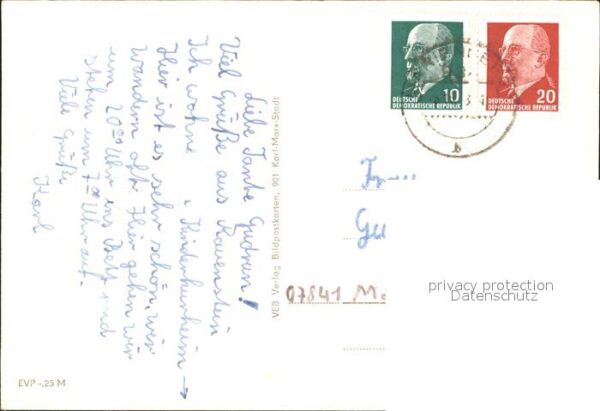 Liebe Tante Gudrun!
Viel Grüße aus Rauenstein
Ich wohne
, Kinderkurheim →
Hier ist es sehr schön, wir
wandern oft. Hier gehen wir
um 20⁰⁰ Uhr ins Bett und
stehen um 7⁰⁰ Uhr auf.
Viele Grüße
Karl
EVP -,25 M
VEB Verlag Bildpostkarten, 901 Karl-Marx-Stadt
10
DEUTSCHE
DEMOKRATISCHE REPUBLIK
20
DEUTSCHE
DEMOKRATISCHE REPUBLIK
b
Gu
07841 Me
privacy protection
Datenschutz